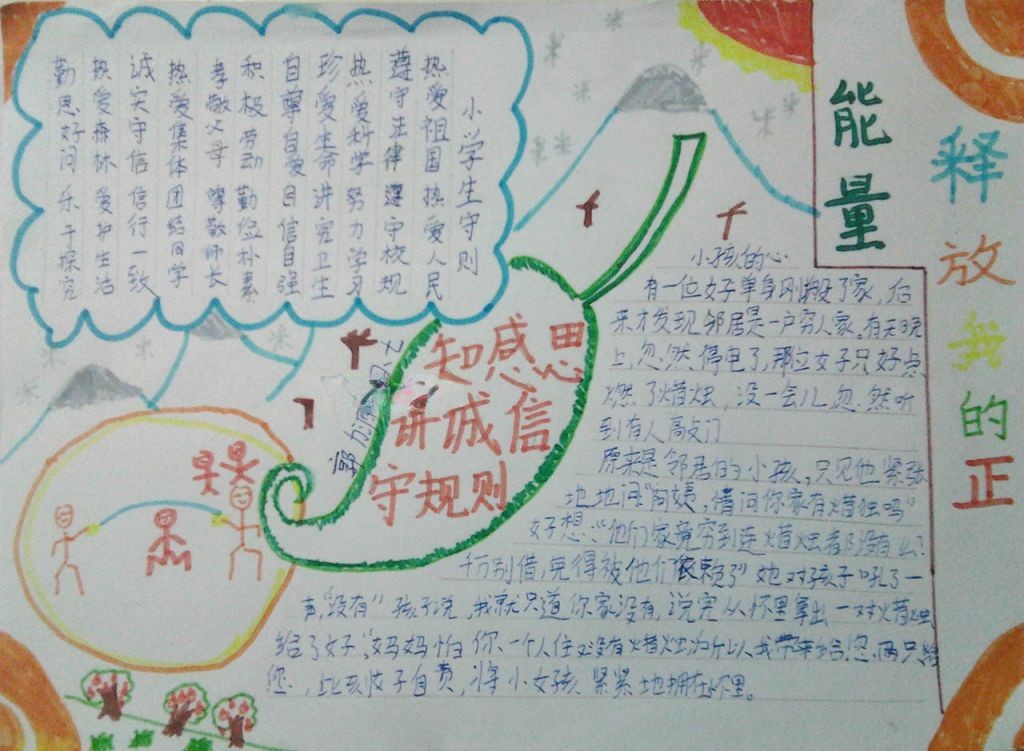 释放我的正
能量
小学生守则
热爱祖国热爱人民
遵守法律遵守校规
热爱科学努力学习
珍爱生命讲究卫生
自尊自爱自信自强
积极劳动勤俭朴素
孝敬父母尊敬师长
热爱集体团结同学
诚实守信信行一致
热爱森林爱护生活
勤思好问乐于探究
知感恩
讲诚信
守规则
小孩的心
有一位女子单身刚搬了家,后
来才发现邻居是一户穷人家。有天晚
上,忽然停电了,那位女子只好点
燃了蜡烛,没一会儿忽然听
到有人敲门
原来是邻居的小孩,只见他紧张
地地问“阿姨,请问你家有蜡烛吗”
女子想:“他们家竟穷到连蜡烛都没有么?
千万别借,免得被他们依赖了”她对孩子吼了一
声,“没有”孩子说,我就只道你家没有,说完从怀里拿出一对蜡烛
给了女子,“妈妈怕你一个人住又没有蜡烛为所以我带来给您,两只给
您,比孩女子自责,将小女孩紧紧地拥在怀里。